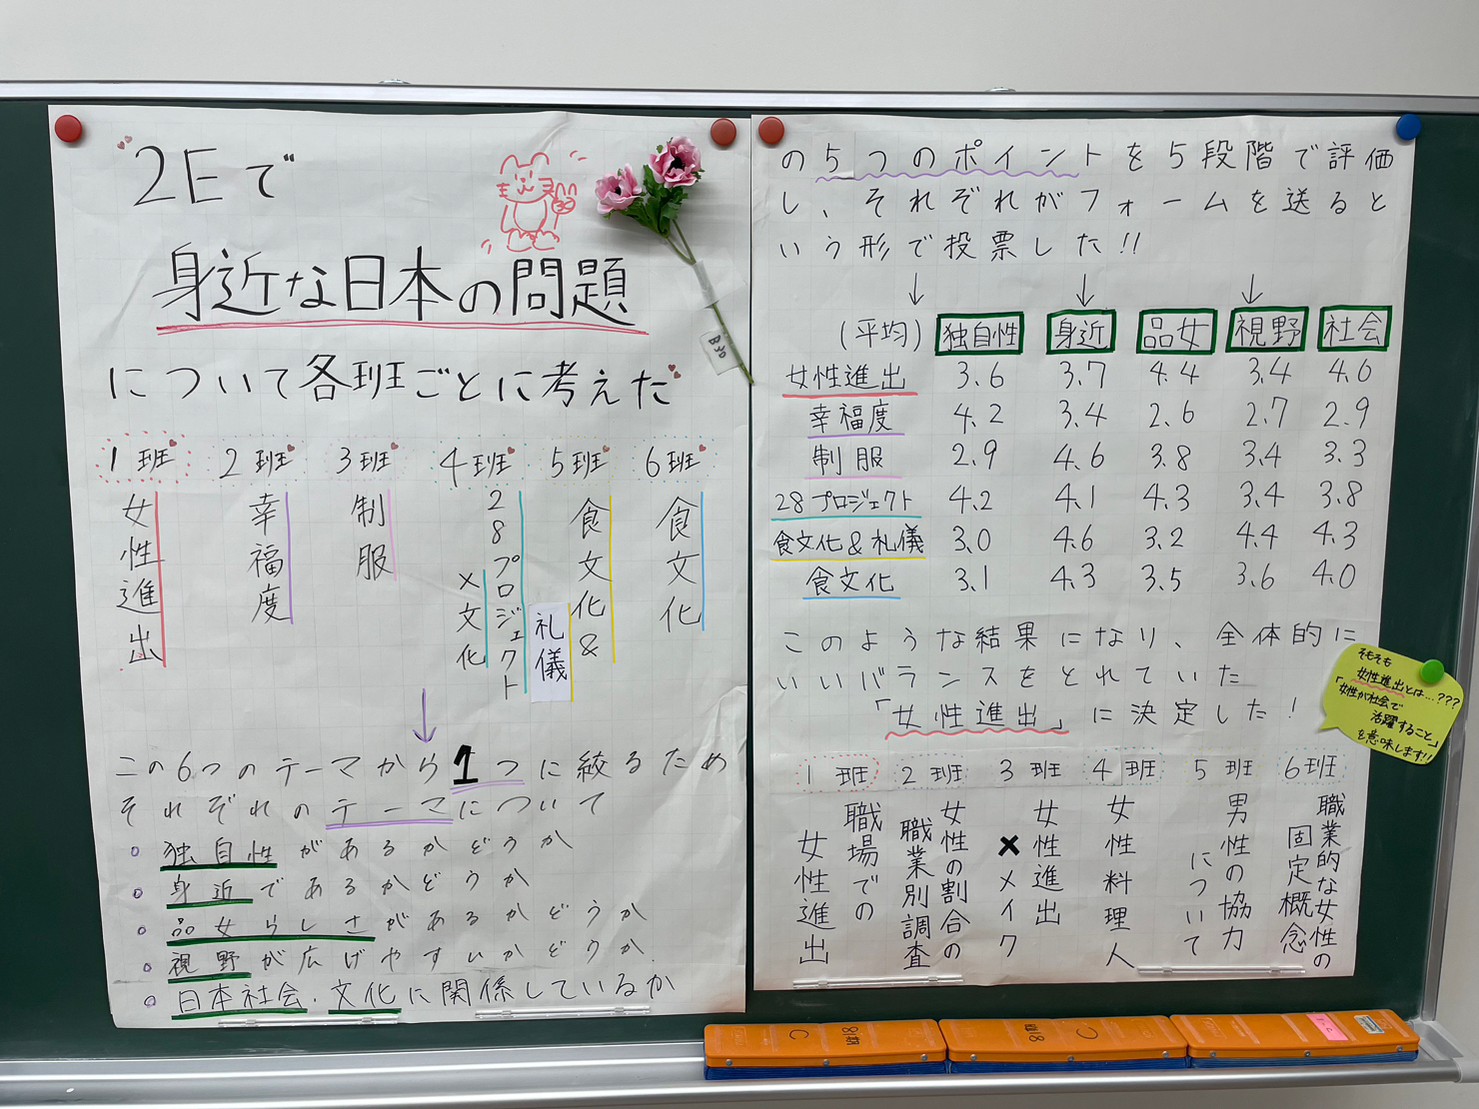 2Eで
身近な日本の問題
について各班ごとに考えた
1班
女性進出
2班
幸福度
3班
制服
4班
28プロジェクト
×文化
5班
食文化&
礼儀
6班
食文化
この6つのテーマから1つに絞るため
それぞれのテーマについて
独自性があるかどうか
身近であるかどうか
品女らしさがあるかどうか
視野が広げやすいかどうか
日本社会・文化に関係しているか
B30
の5つのポイントを5段階で評価
し、それぞれがフォームを送ると
いう形で投票した!!
↓ ↓ ↓
(平均) 独自性 身近 品女 視野 社会
女性進出 3.6 3.7 4.4 3.4 4.0
幸福度 4.2 3.4 2.6 2.7 2.9
制服 2.9 4.6 3.8 3.4 3.3
28プロジェクト 4.2 4.1 4.3 3.4 3.8
食文化&礼儀 3.0 4.6 3.2 4.4 4.3
食文化 3.1 4.3 3.5 3.6 4.0
このような結果になり、全体的に
いいバランスをとれていた
「女性進出」に決定した!
そもそも
女性進出とは…???
「女性が社会で
活躍すること」
を意味します!!
1班
職場での
女性進出
2班
女性の割合の
職業別調査
3班
女性進出
×メイク
4班
女性料理人
5班
男性の協力
について
6班
職業的な女性の
固定概念
C